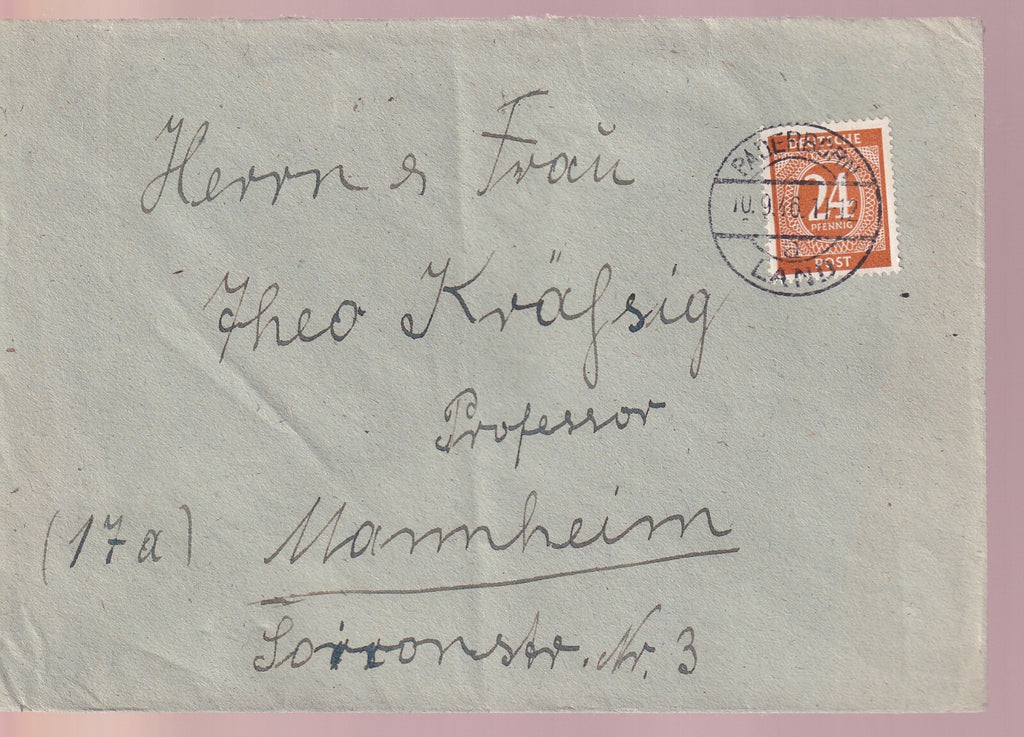 Herrn & Frau
Theo Kräßsig
Professor
(17a) Mannheim
Sorronstr. Nr. 3
DEUTSCHE
24
PFENNIG
POST
PADERBORN
10.9.46.
LAND